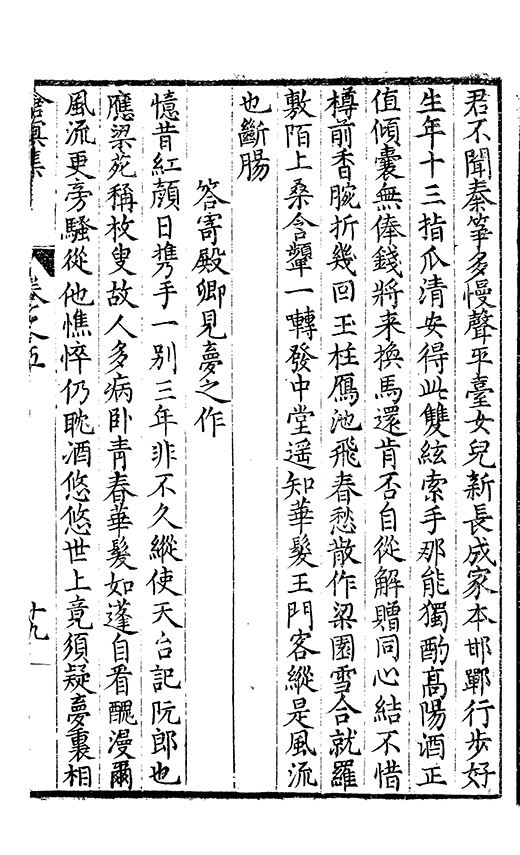 君不聞秦箏多慢聲平臺女兒新長成家本邯鄲行步好
生年十三指爪清安得此雙絃索手那能獨酌高陽酒正
值傾囊無俸錢將来換馬還肯否自從解贈同心結不惜
樽前香腕折幾回玉柱鴈池飛春愁散作梁園雪合就羅
敷陌上桑含顰一囀發中堂遥知華髮王門客縱是風流
也斷腸
答寄殿卿見夢之作
憶昔紅顔日携手一别三年非不久縱使天台記阮郎也
應梁苑稱枚叟故人多病卧青春華髮如蓬自看醜漫爾
風流更旁騷從他憔悴仍耽酒悠悠世上竟須疑夢裏相
滄溟集
卷之五
十九